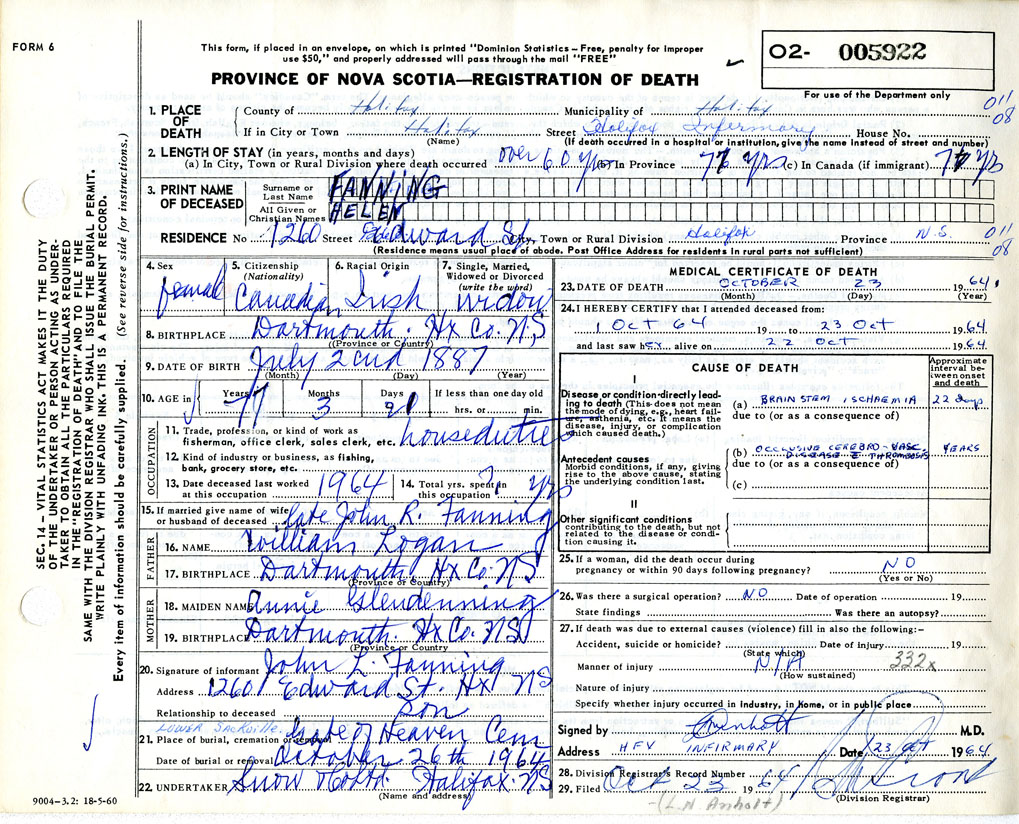 FORM 6
This form, if placed in an envelope, on which is printed "Dominion Statistics – Free, penalty for improper
use $50," and properly addressed will pass through the mail "FREE"
PROVINCE OF NOVA SCOTIA—REGISTRATION OF DEATH
O2- 005922
For use of the Department only
011
08
1. PLACE OF DEATH
County of Halifax Municipality of Halifax
If in City or Town Halifax Street Halifax Infirmary House No.
(Name) (If death occurred in a hospital or institution, give the name instead of street and number)
2. LENGTH OF STAY (in years, months and days)
(a) In City, Town or Rural Division where death occurred over 60 yrs (b) In Province 77 yrs (c) In Canada (if immigrant) 77 yrs
3. PRINT NAME OF DECEASED
Surname or Last Name FANNING
All Given or Christian Names HELEN
RESIDENCE No 1260 Street Edward St. City, Town or Rural Division Halifax Province N.S.
011
08
(Residence means usual place of abode. Post Office Address for residents in rural parts not sufficient)
4. Sex
female
5. Citizenship (Nationality)
Canadian
6. Racial Origin
Irish
7. Single, Married, Widowed or Divorced (write the word)
widow
8. BIRTHPLACE Dartmouth. Hx Co. N.S
(Province or Country)
9. DATE OF BIRTH July 22nd 1887
(Month) (Day) (Year)
10. AGE in Years 77 Months 3 Days If less than one day hrs. or min.
OCCUPATION
11. Trade, profession, or kind of work as
fisherman, office clerk, sales clerk, etc. houseduties
12. Kind of industry or business, as fishing,
bank, grocery store, etc.
13. Date deceased last worked at this occupation 1964
14. Total yrs. spent in this occupation ? yrs
15. If married give name of wife
or husband of deceased late John R. Fanning
FATHER
16. NAME William Logan
17. BIRTHPLACE Dartmouth. Hx Co. NS
(Province or Country)
MOTHER
18. MAIDEN NAME Annie Glendenning
19. BIRTHPLACE Dartmouth. Hx Co. NS
(Province or Country)
20. Signature of informant John L. Fanning
Address 1260 Edward St. Hx NS
Relationship to deceased son
Lower Sackville.
21. Place of burial, cremation or removal Gate of Heaven Cem
Date of burial or removal October 26th 1964
22. UNDERTAKER Snow Halifax. NS
(Name and address)
9004-3.2: 18-5-60
MEDICAL CERTIFICATE OF DEATH
23. DATE OF DEATH OCTOBER 23 1964.
(Month) (Day) (Year)
24. I HEREBY CERTIFY that I attended deceased from:
1 OCT 64 19 to 23 OCT 1964
and last saw her alive on 22 OCT 1964.
CAUSE OF DEATH
Approximate interval between onset and death
I
Disease or condition directly leading to death (This does not mean
the mode of dying, e.g., heart failure, asthenia, etc. It means the
disease, injury, or complication
which caused death.)
(a) BRAIN STEM ISCHAEMIA 22 days
due to (or as a consequence of)
Antecedent causes
Morbid conditions, if any, giving
rise to the above cause, stating
the underlying condition last.
(b) OCCLUSIVE CEREBRO-VASC. DISEASE c THROMBOSIS YEARS
due to (or as a consequence of)
(c)
II
Other significant conditions
contributing to the death, but not
related to the disease or condition causing it.
25. If a woman, did the death occur during
pregnancy or within 90 days following pregnancy? NO
(Yes or No)
26. Was there a surgical operation? NO Date of operation 19
State findings Was there an autopsy?
27. If death was due to external causes (violence) fill in also the following:–
Accident, suicide or homicide? Date of injury 19
(State which)
Manner of injury N/A 332x
(How sustained)
Nature of injury
Specify whether injury occurred in industry, in home, or in public place
Signed by M.D.
Address HFX INFIRMARY Date 23 OCT 1964
28. Division Registrar's Record Number
29. Filed Oct 23 1964
(Division Registrar)
(L.N. Anholt)
SEC. 14 – VITAL STATISTICS ACT MAKES IT THE DUTY
OF THE UNDERTAKER OR PERSON ACTING AS UNDERTAKER TO OBTAIN ALL THE PARTICULARS REQUIRED
IN THE "REGISTRATION OF DEATH" AND TO FILE THE
SAME WITH THE DIVISION REGISTRAR WHO SHALL ISSUE THE BURIAL PERMIT.
WRITE PLAINLY WITH UNFADING INK. THIS IS A PERMANENT RECORD.
Every item of information should be carefully supplied. (See reverse side for instructions.)